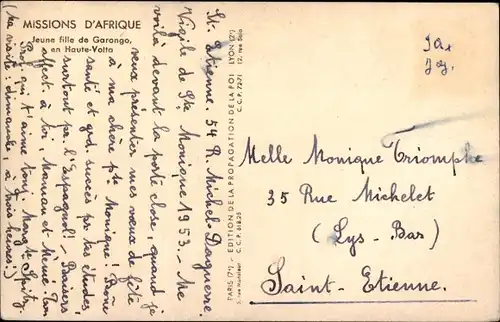 MISSIONS D'AFRIQUE
Jeune fille de Garango,
en Haute-Volta
St. Etienne. 54 R. Michel-Daguerre.
Vigile de Ste Monique 1953. — Me
voilà devant la porte close, quand je
veux présenter mes vœux de fête
à ma chère pte Monique! Bonne
santé et gds succès pr tes études,
surtout pr. l'Espagnol! — Baisers
affect. à toi, Maman et Mémé. Ton
Prof. qui t'aime
(ta visite: dimanche, à trois heures!)
PARIS (7e) — EDITION DE LA PROPAGATION DE LA FOI LYON (2e)
5, rue Monsieur C.C.P. C.C.P. 7271 12, rue Sala
Melle Monique Triomphe
35 Rue Michelet
(Lys-Bar)
Saint-Etienne.